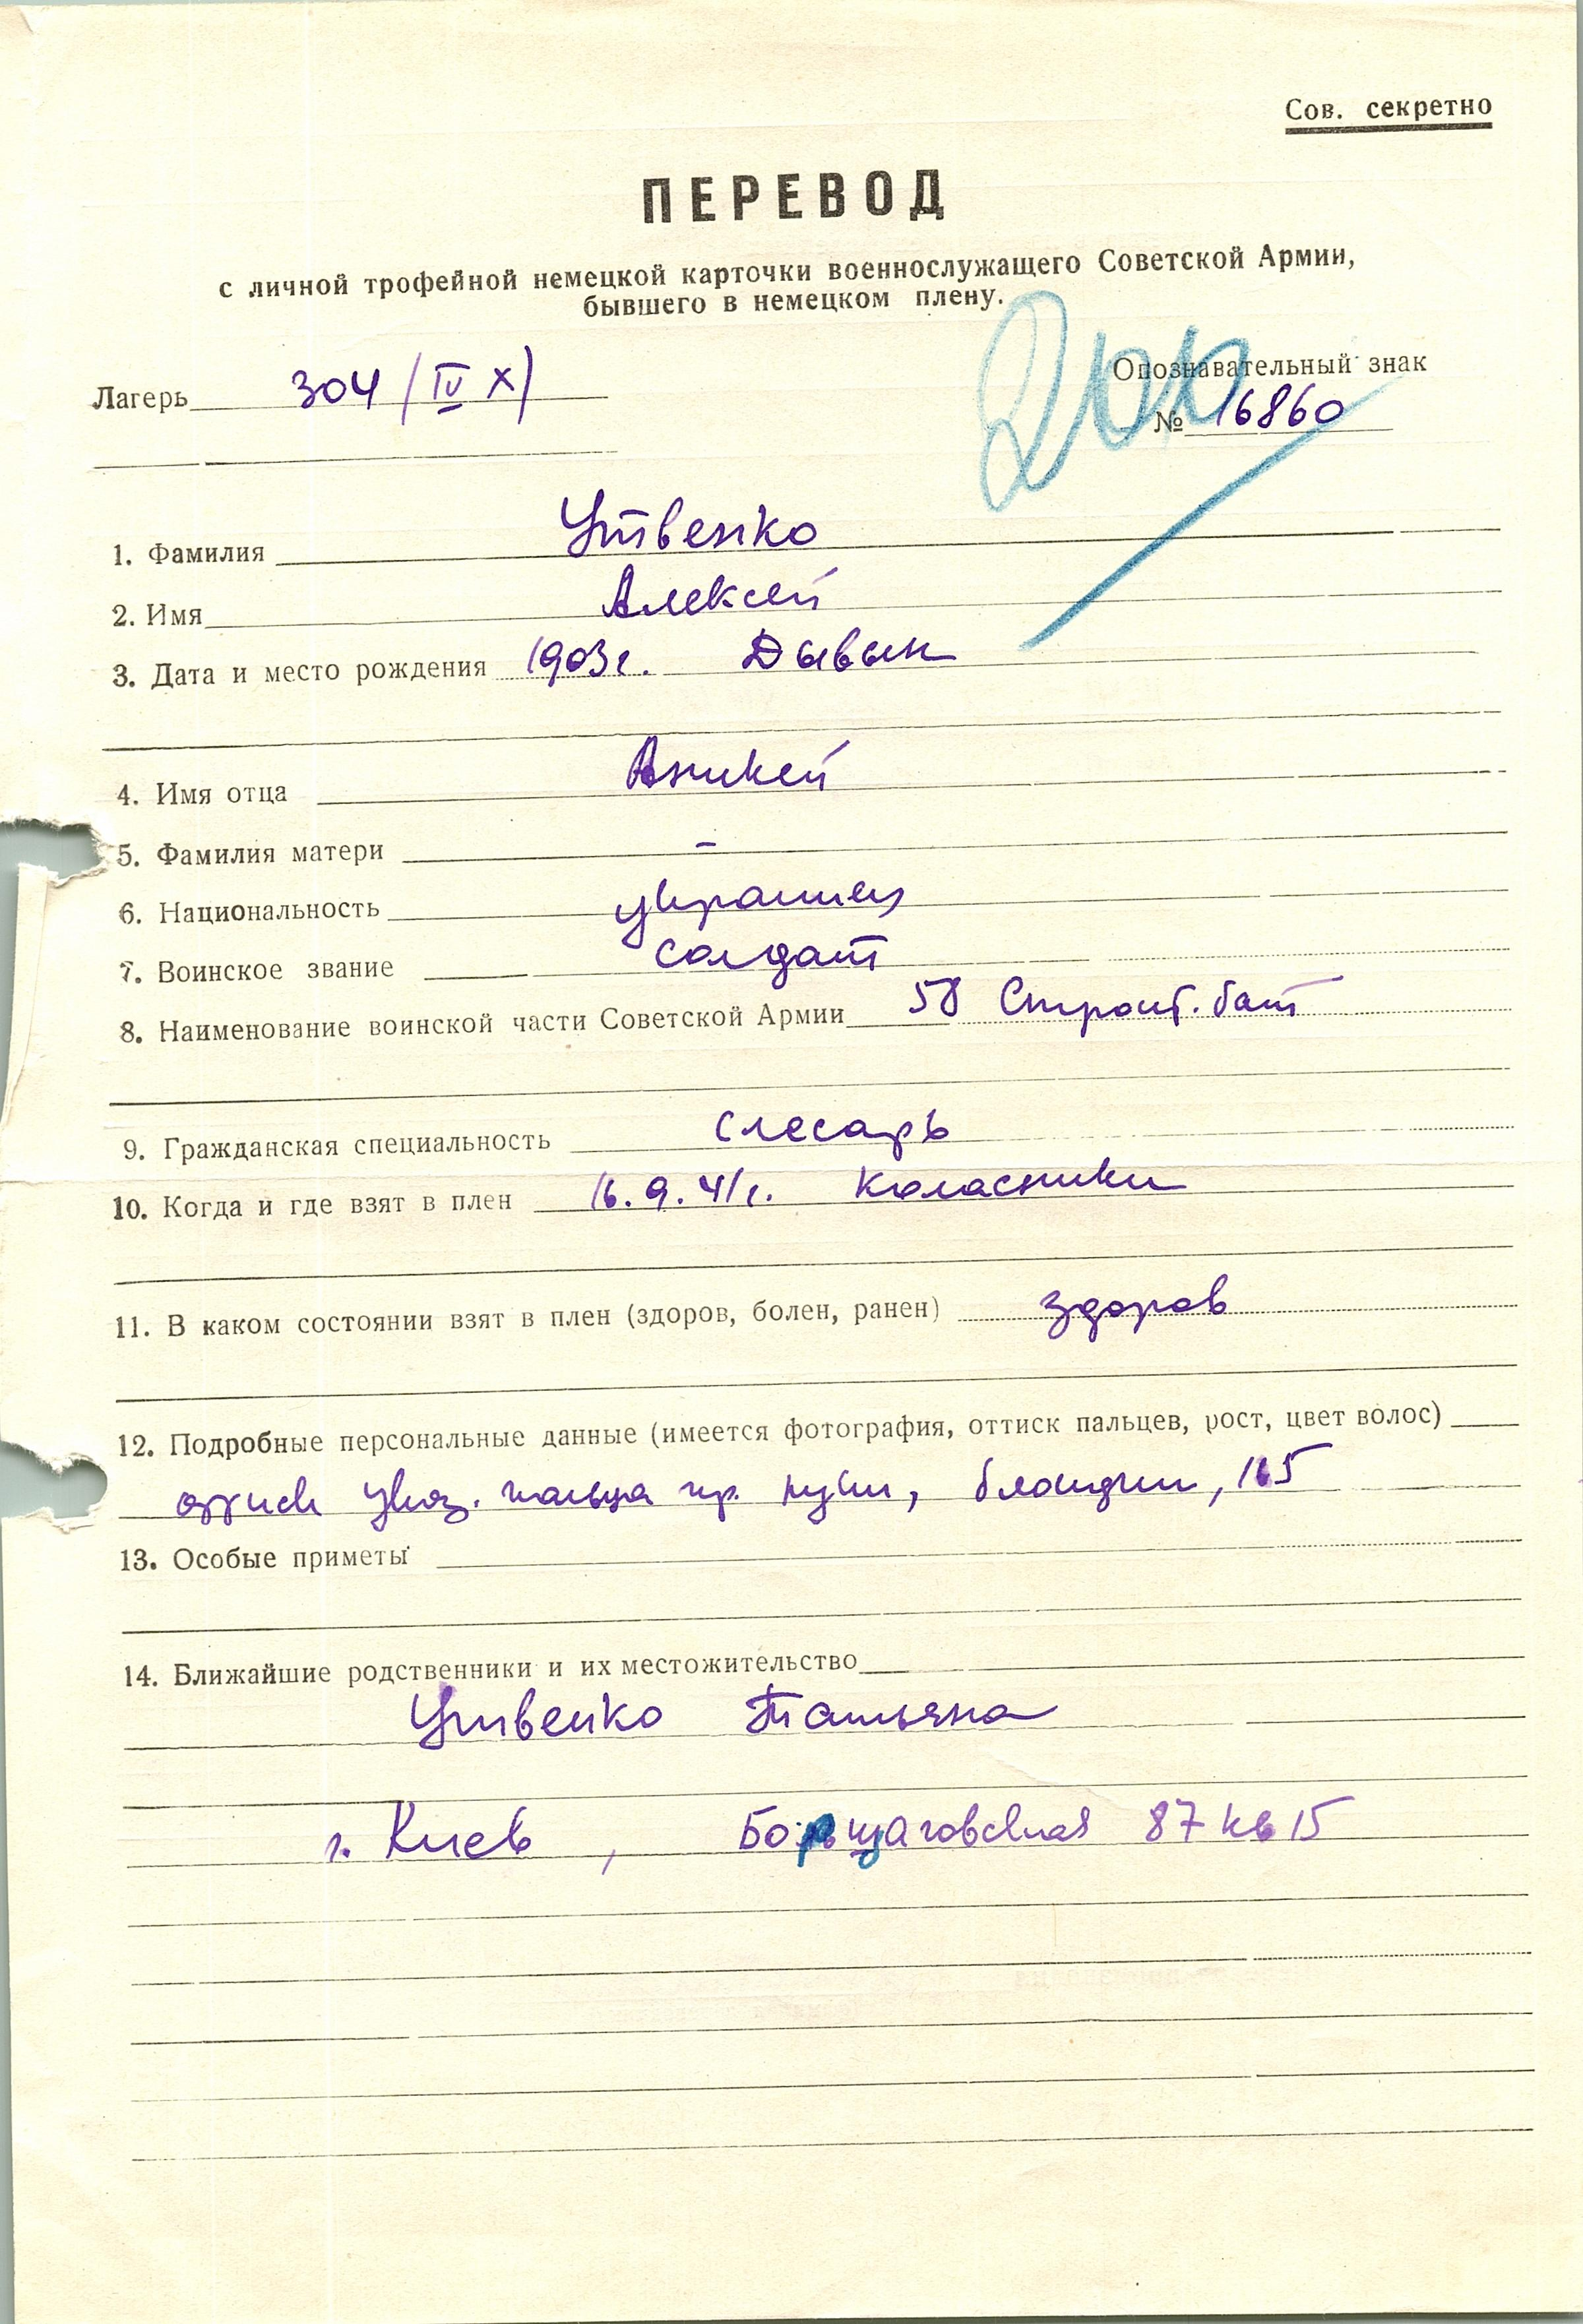 Сов. секретно
ПЕРЕВОД
с личной трофейной немецкой карточки военнослужащего Советской Армии,
бывшего в немецком плену.
Лагерь 304 (IV X)
Опознавательный знак
№ 16860
1. Фамилия Утвенко
2. Имя Алексей
3. Дата и место рождения 1903 г. Дывын
4. Имя отца Аникей
5. Фамилия матери –
6. Национальность украинец
7. Воинское звание солдат
8. Наименование воинской части Советской Армии 58 Строит. бат
9. Гражданская специальность слесарь
10. Когда и где взят в плен 16.9.41 г. Коласники
11. В каком состоянии взят в плен (здоров, болен, ранен) здоров
12. Подробные персональные данные (имеется фотография, оттиск пальцев, рост, цвет волос)
оттиск указ. пальца пр. руки, блондин, 165
13. Особые приметы
14. Ближайшие родственники и их местожительство
Утвенко Татьяна
г. Киев, Борщаговская 87 кв 15